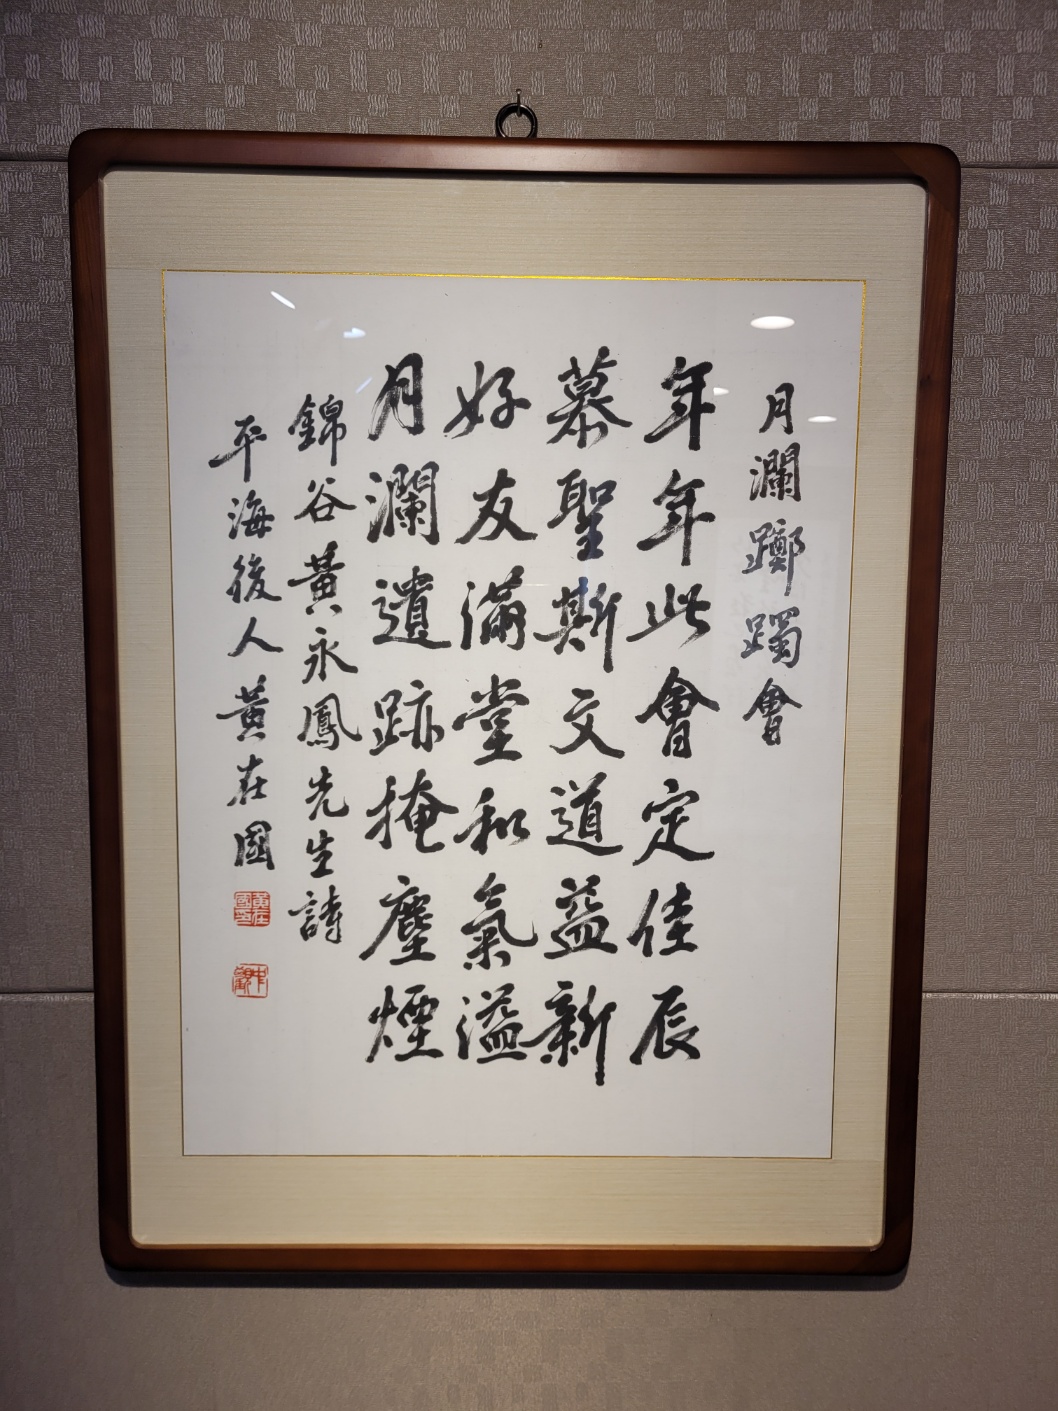 月瀾躑躅會
年年此會定佳辰
慕聖斯文道益新
好友滿堂和氣溢
月瀾遺跡掩塵煙
錦谷黃永鳳先生詩
平海後人黃在國
黃在國印